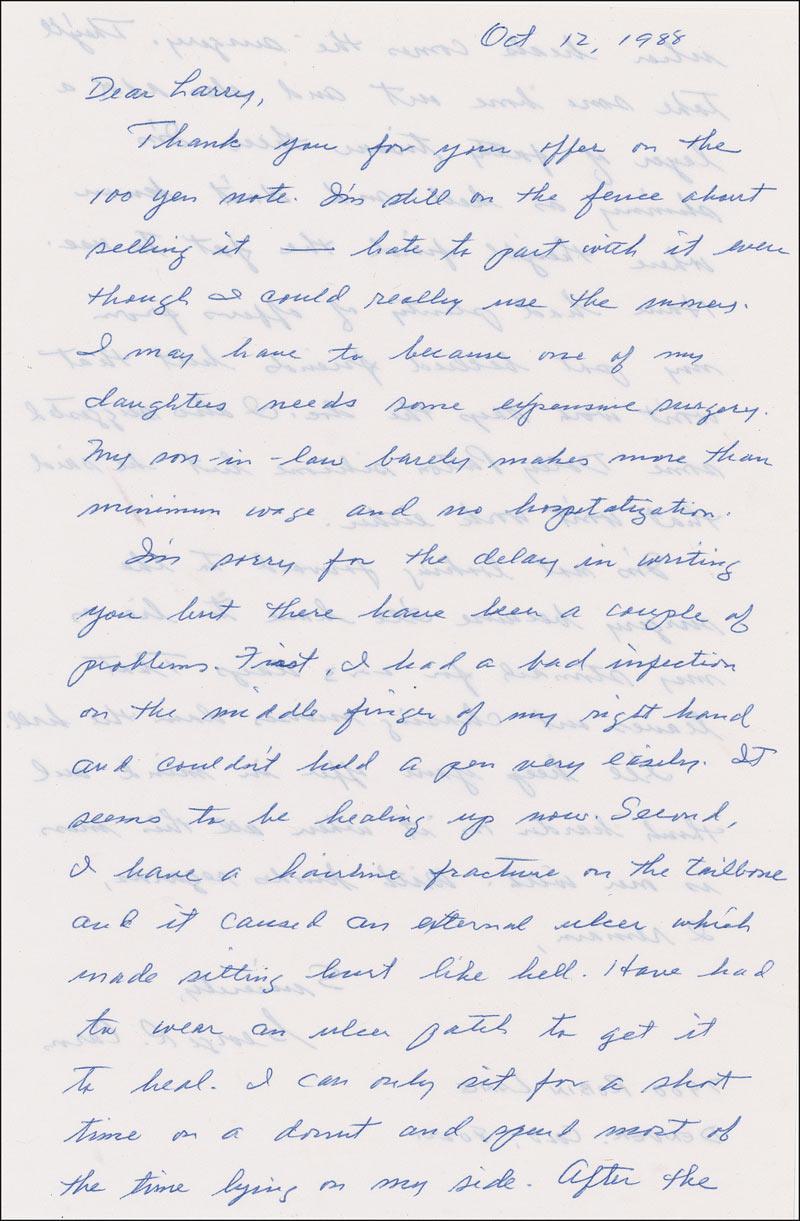 Oct 12, 1988
Dear Larry,
Thank you for your offer on the
100 yen note. I'm still on the fence about
selling it — hate to part with it even
though I could really use the money.
I may have to because one of my
daughters needs some expensive surgery.
My son-in-law barely makes more than
minimum wage and no hospitalization.
I'm sorry for the delay in writing
you but there have been a couple of
problems. First, I had a bad infection
on the middle finger of my right hand
and couldn't hold a pen very easily. It
seems to be healing up now. Second,
I have a hairline fracture on the tailbone
and it caused an external ulcer which
made sitting hurt like hell. Have had
to wear an ulcer patch to get it
to heal. I can only sit for a short
time on a donut and spend most of
the time lying on my side. After the